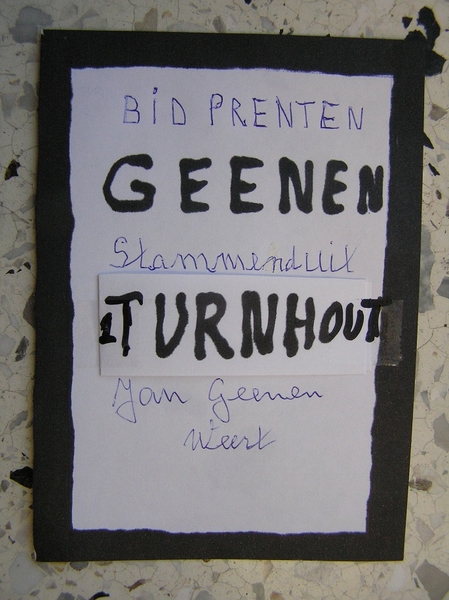 BiD PRENTEN
GEENEN
Stammend uit
TURNHOUT
Jan Geenen
Weert